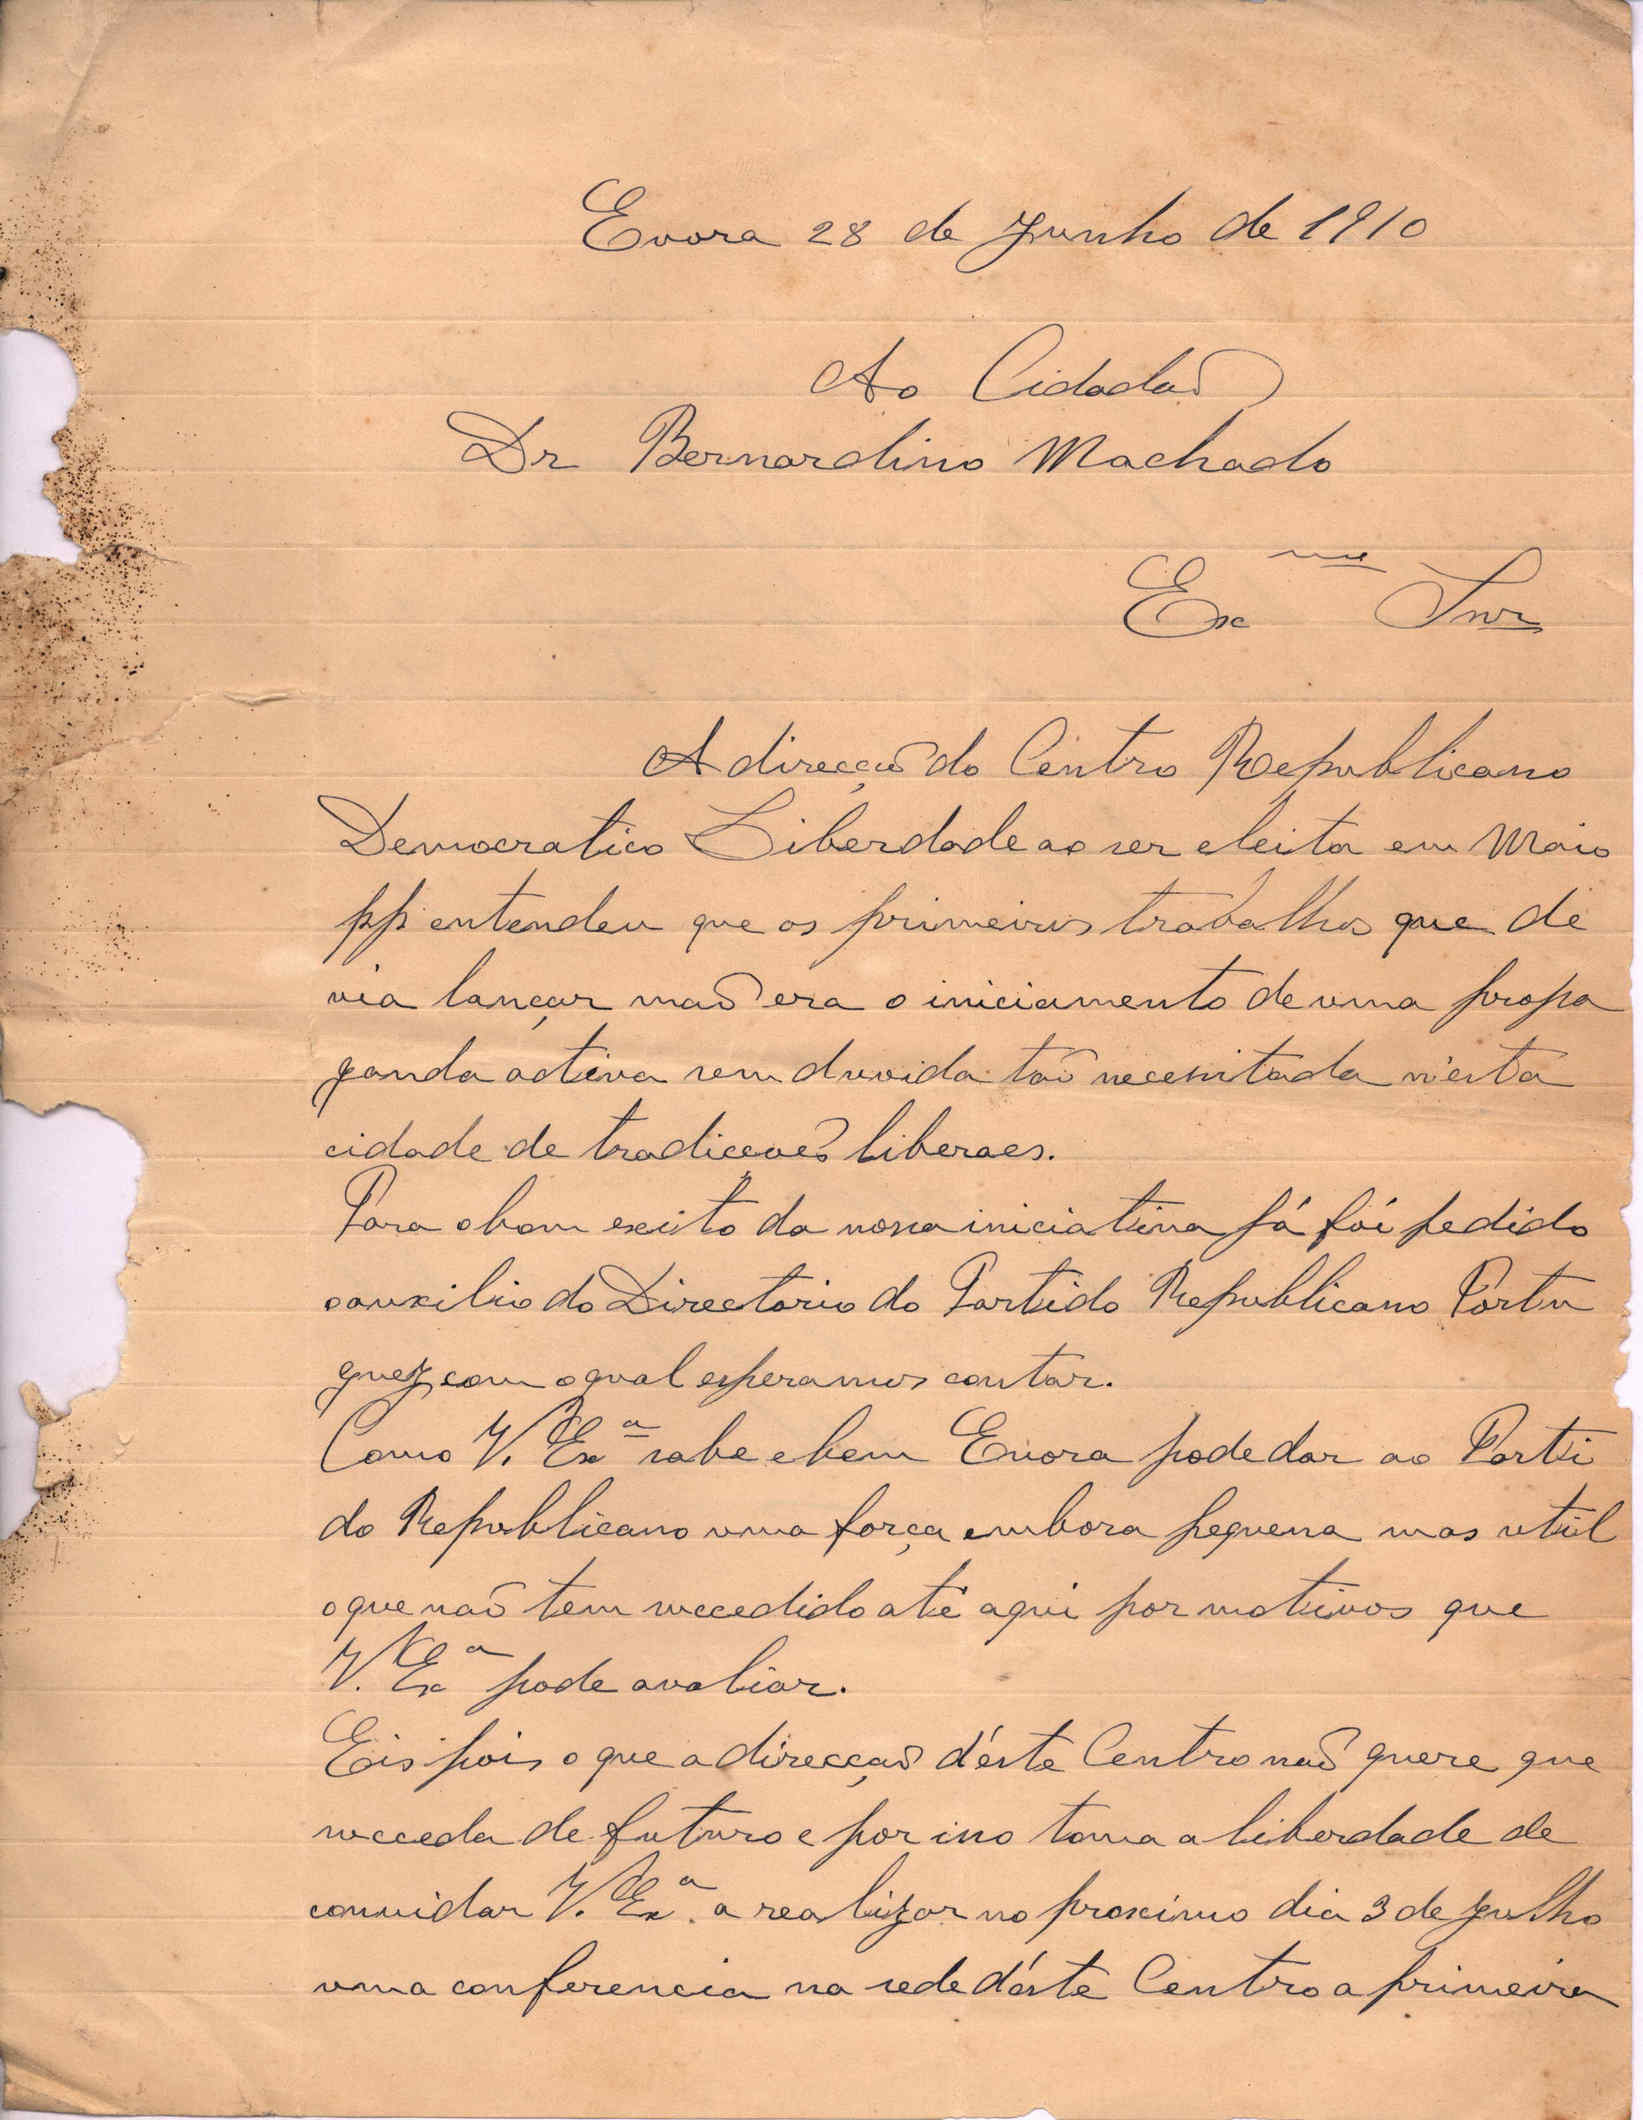 Evora 28 de Junho de 1910
Ao Cidadaõ
Dr Bernardino Machado
Exme Snr
A direcçaõ do Centro Republicano
Democratico Liberdade ao ser eleita em Maio
pp entendeu que os primeiros trabalhos que de
via lançar maõ era o iniciamento de uma propa
ganda activa sem duvida taõ necessitada n'esta
cidade de tradicções liberaes.
Para o bom exito da nossa iniciativa já foi pedido
o auxilio do Directorio do Partido Republicano Portu
guez com o qual esperamos contar.
Como V. Exa sabe e bem Evora pode dar ao Parti
do Republicano uma força embora pequena mas util
o que naõ tem succedido até aqui por motivos que
V. Exa pode avaliar.
Eis pois o que a direcçaõ d'éste Centro naõ quere que
succeda de futuro e por isso toma a liberdade de
convidar V. Exa a realizar no proximo dia 3 de Julho
uma conferencia na sede d'éste Centro a primeira